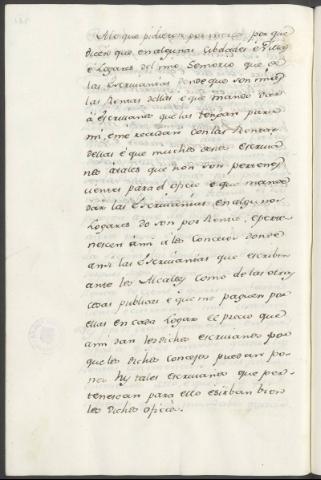 Alo que pidieron por merced, por que
dicen que en algunas Cibdades e Villas
e Logares del mio Sennorio que
las Escriuanias donde que son mias
las Rentas dellas e que mando dar
a escriuanos que las tengan para
mi, e me recudan con las Rentas
dellas e que muchos destos escriua
nos átales que non son pertenes
cientes para el oficio e que mande
dar las Escriuanias en algunos
Logares do son por Renta, e perte
nescen ami a los Concejos donde
ansi las Escriuanias que escriben
ante los Alcaldes como de las otras
cosas publicas e que me paguen por
ellas en cada Logar el precio que
ami dan los dichos escriuanos por
que los dichos Concejos puedan po
ner hy tales escriuanos que per
tenescan para ello e sirban bien
los dichos oficios.